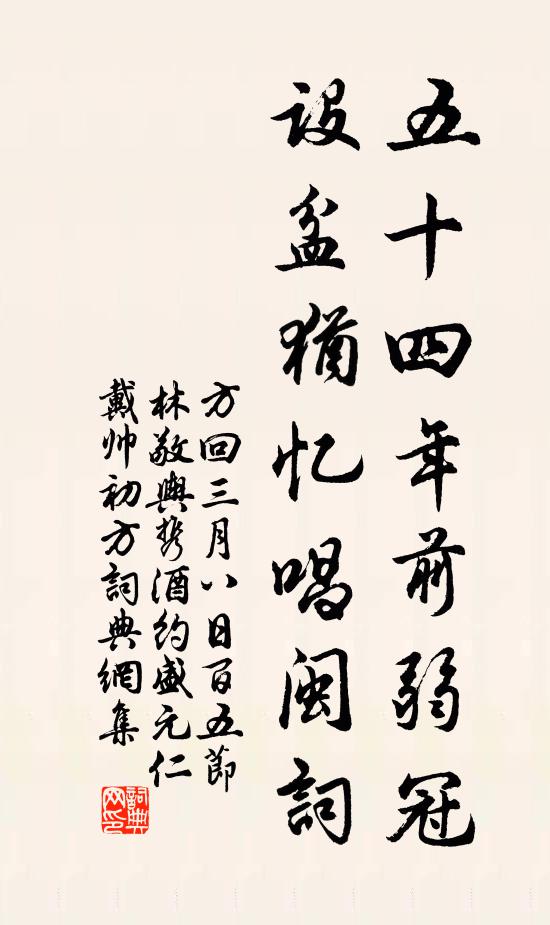 五十四年前弱冠
設盆猶忆唱閩詞
方回三月八日百五節
林敬輿携酒約盛元仁
戴帅初方詞典網集
詞典網印